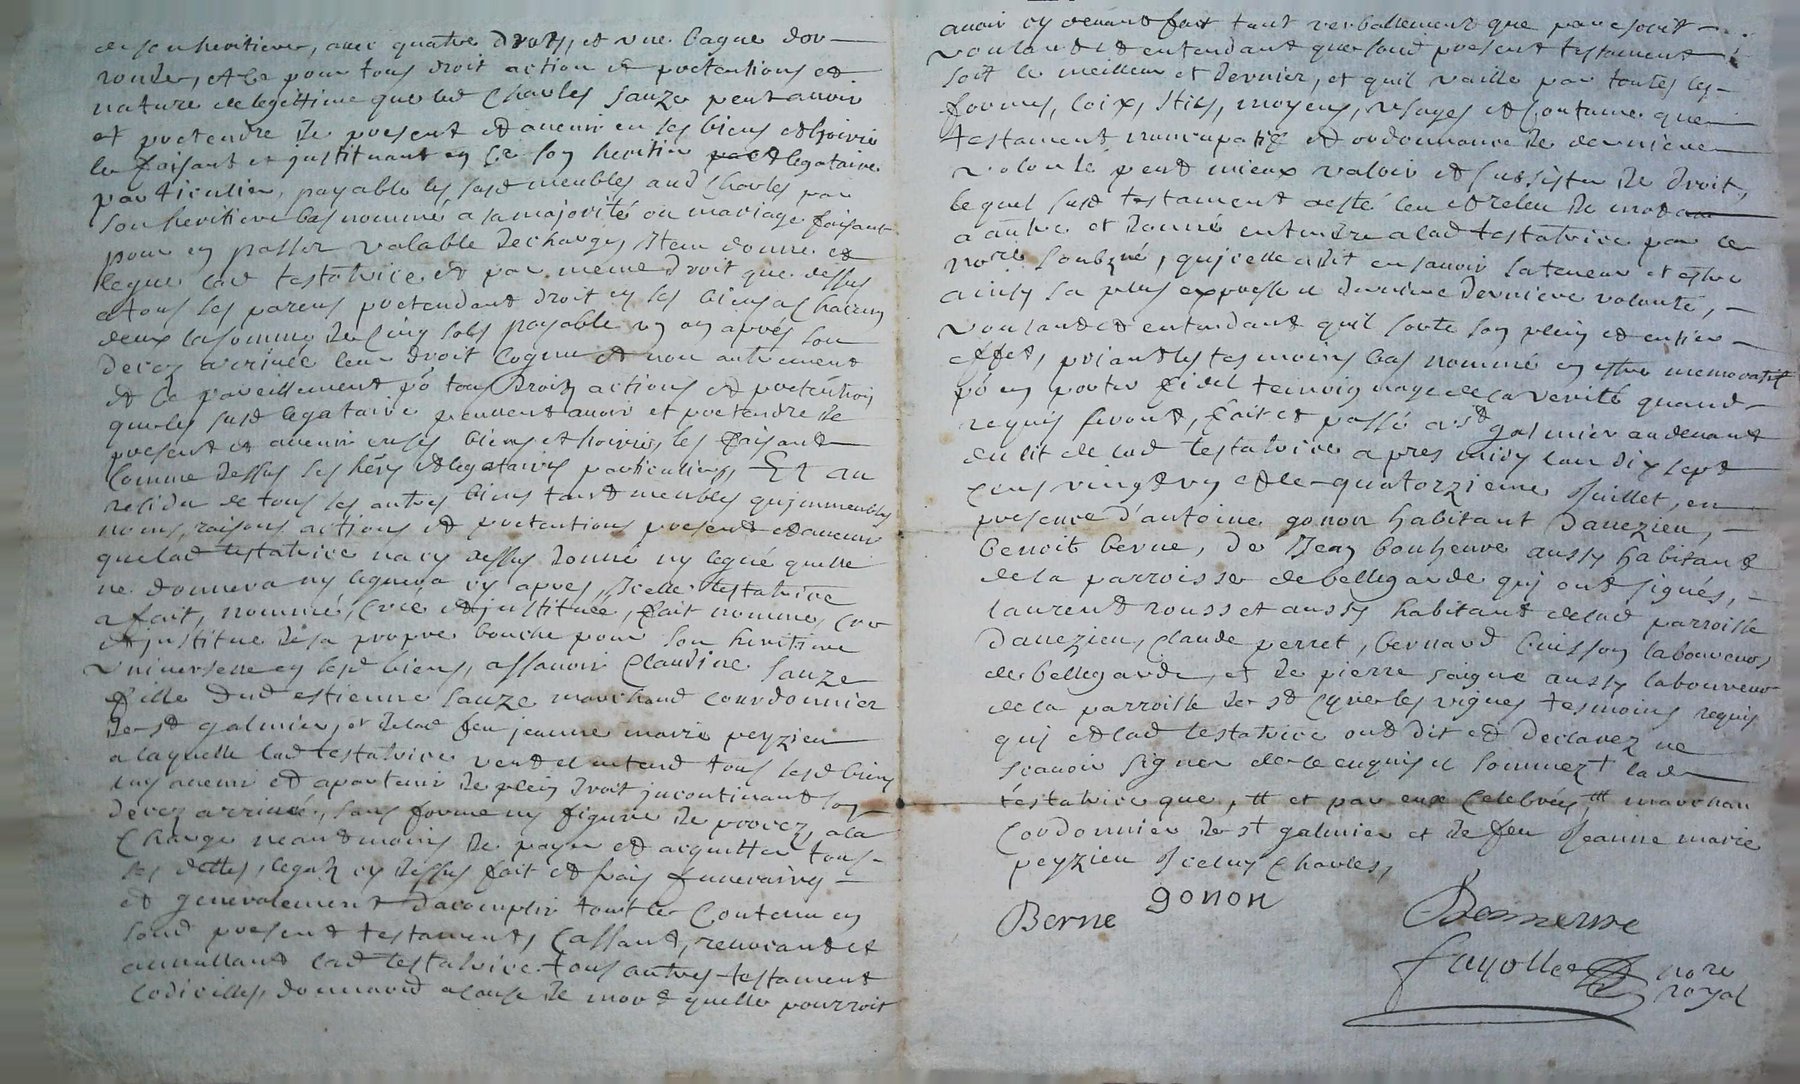 de son heritiere, avec quatre draps, et une bague dor
ronde, et ce pour tous droit action et pretentions et
nature de legittime que led Charles Sauze peut avoir
et pretendre de present et avenir en ses biens et hoirie
le faisant et instituant en ce son heritier et legataire
particulier, payable les susd meubles aud Charles par
son heritiere bas nommé a sa majorité ou mariage faisant
pour en passer valable decharge, Item donne et
legue lad testatrice et par meme droit que dessus
a tous ses parens pretendant droit en ses biens a chacun
deux la somme de cinq sols payable un an apres son
decez arrivée leur droit cognu et non autrement
et ce pareillement po tous droits actions et pretention
que les susd legataire peuvent avoir et pretendre de
present et avenir en ses biens et hoirie, les faisant
comme dessus ses hers et legataires particuliers, Et au
residu de tous ses autres biens tant meubles qu'immeubles
noms, raisons actions et pretentions present et avenir
que lad testatrice na cy dessus donné ny legué quelle
ne donnera ny leguera cy apres, Icelle testatrice
a fait, nommé, créé et instituée, fait nomme, cree
et institue de sa propre bouche pour son heritiere
universelle en sesd biens, assavoir Claudine Sauze
fille dud estienne Sauze marchand courdonnier
de st galmier, et delad feu jeanne marie peyzieu
a laquelle lad testatrice veut et entend tous sesd biens
luy avenir et apartenir de plein droit incontinant son
decez arrivée, sans forme ny figure de procez, a la
charge neantmoins de payer et acquitter tous
ses dettes, legatz cy dessus fait et frais funeraires
et generalement dacomplir tout le contenu en
sond present testament, Cassant, revocant et
annullant lad testatrice tous autres testament
codicilles, donnaõ a cause de mort quelle pourroit
avoir cy devant fait tant verballement que par escrit
voulant et entendant que sond present testament
soit le meilleur et dernier, et quil vaille par toutes les
formes, loix, stils, moyens, usages et Coutume que
testament nuncupatif et ordonnance de derniere
volonté peut mieux valoir et subsister de droit,
lequel susd testament a esté leu et releu de mot
a autre et donné entendre a lad testatrice par le
nore soubzné, qu'icelle a dit en savoir la teneur et estre
ainsy sa plus expresse et derniere derniere volonté,
voulant et entendant quil sorte son plein et entier
effet, priant les tesmoins bas nommé en estre memoratif
po en porter fidel temoignage de la verité quand
requis seront, fait et passé a st galmier au devant
du lit de lad testatrice apres midy lan dix sept
cens vingt un et le quatorzieme Juillet, en
presence d'antoine gonon habitant d'avezieu,
benoit berne, de Jean bonherme aussy habitant
de la parroisse de bellegarde qui ont signés,
laurent rousset aussy habitant delad parroisse
davezieu, Claude perret, bernard Cuisson laboureurs
de bellegarde, et de pierre saigne aussy laboureur
de la parroisse de st Cyre les vignes tesmoins requis
qui et lad testatrice ont dit et declarez ne
scavoir signer de ce enquis et sommez † lad
testatrice que, tt et par eux celebrés, ttt marchan
Cordonnier de st galmier et de feu Jeanne marie
peyzieu Iceluy Charles,
Berne gonon Bonnerme
fayolle nore
royal